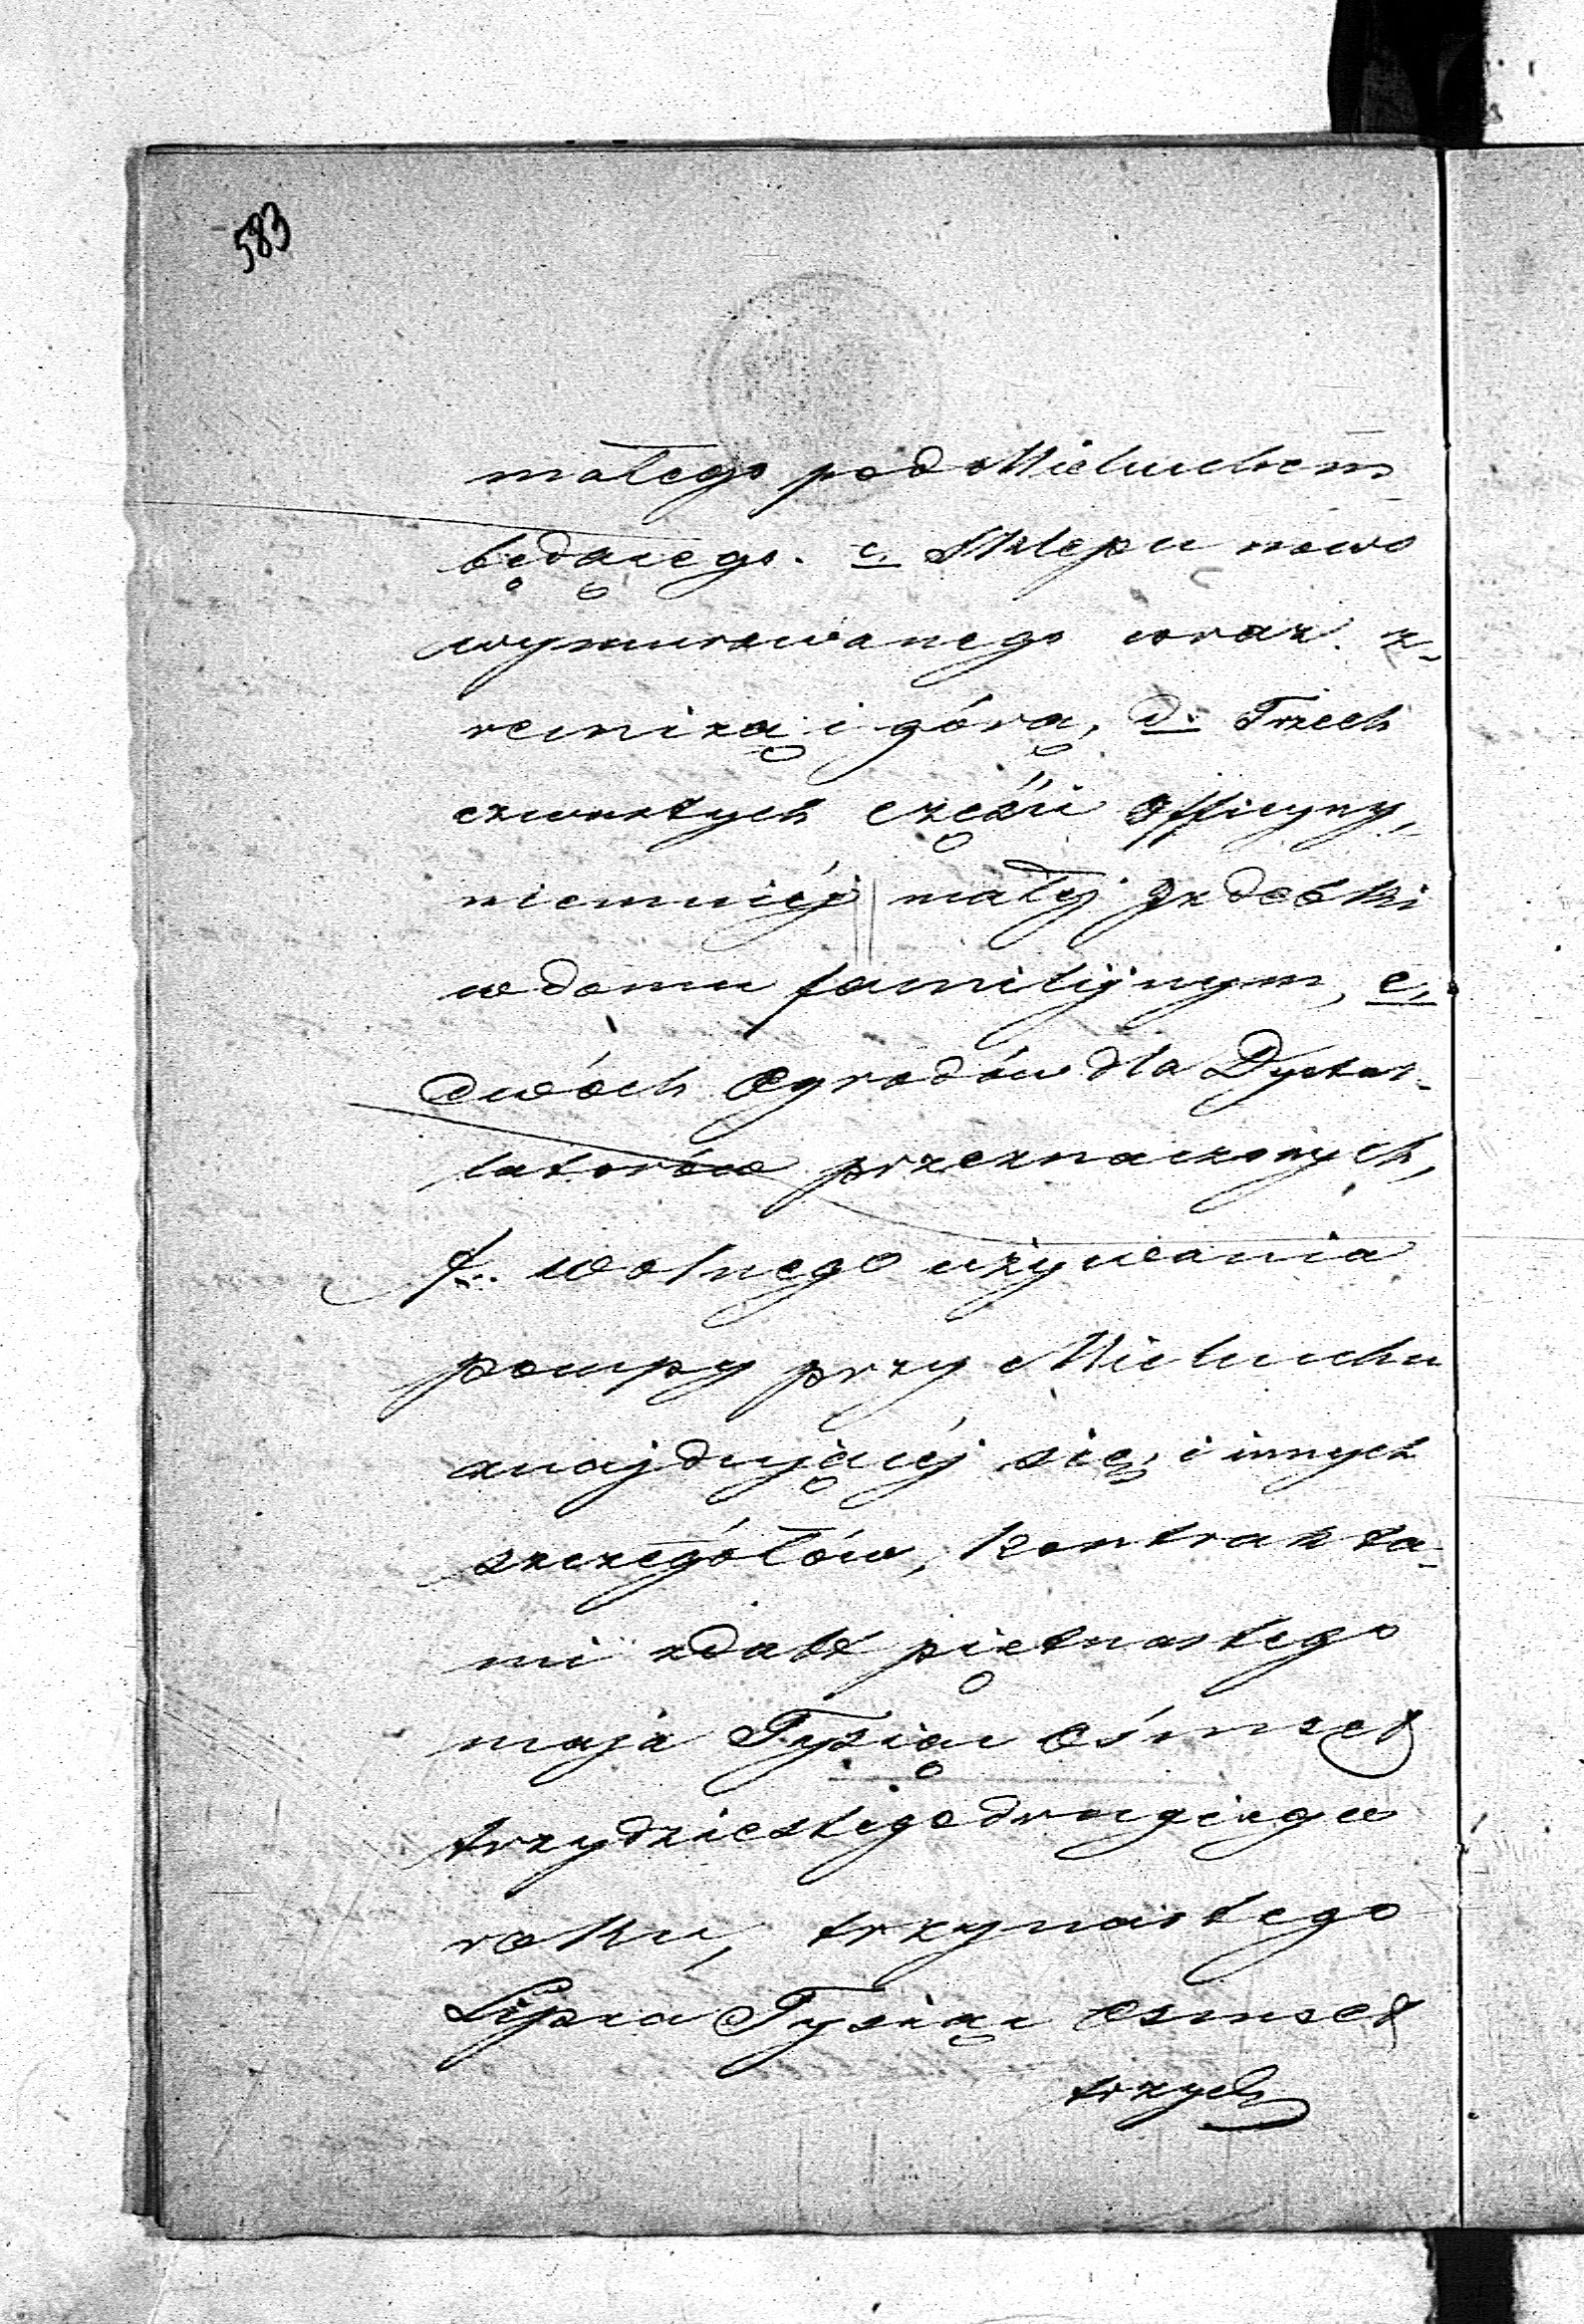 583
małego pod Mieluchem
będącego. c, Sklepu nowo
wymurowanego wraz z-
remizą i górą, d. Trzech
czwartych części Officyny,
niemniéj małéj Izdebki
w domu familijnym, e,
dwóch Ogrodów dla Dystar-
latorów przeznaczonych,
f.. wolnego używania
pompy przy Mieluchu
znajdującéj się, i innych
szczegółów, kontrakta-
mi z dat piętnastego
maja Tysiąc Ośmset
trzydziestego drugiego
roku, trzynastego
Lipca Tysiąc Osmset
trzych